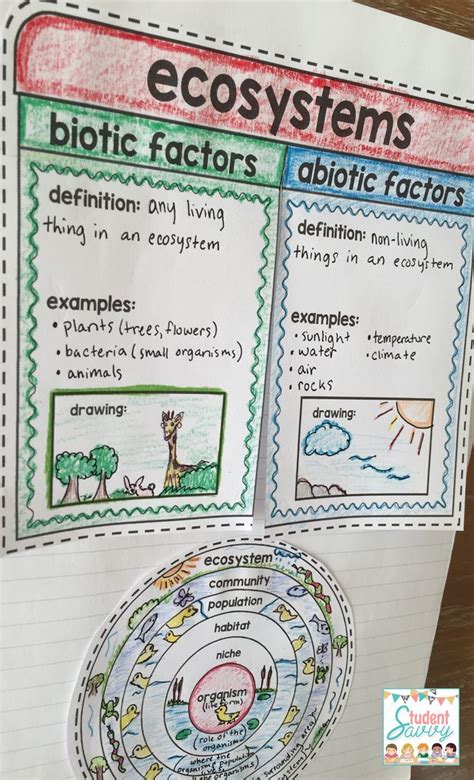 ecosystems
biotic factors
definition: any living
thing in an ecosystem
examples:
• plants (trees, flowers)
• bacteria (small organisms)
• animals
drawing:
abiotic factors
definition: non-living
things in an ecosystem
examples:
• sunlight • temperature
• water • climate
• air
• rocks
drawing:
ecosystem
community
population
habitat
niche
organism
(life form)
(role of the
organism)
where the
organism population
surrounding area
Student
Savvy